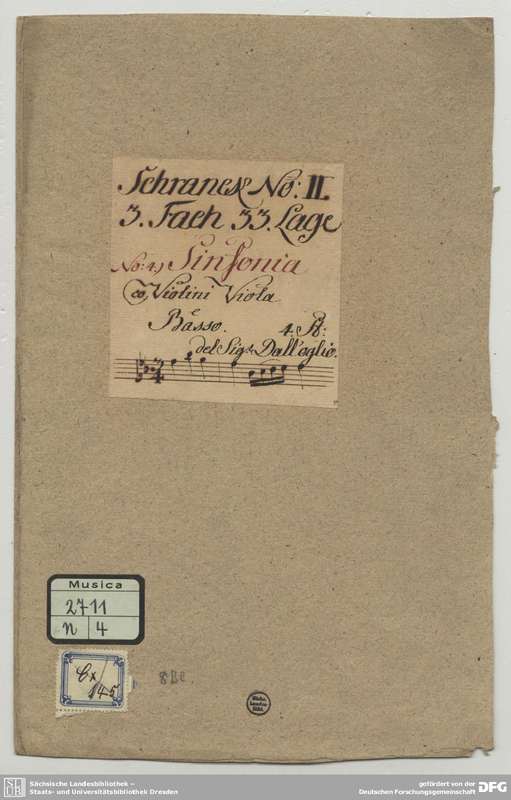 Schranck No: II.
3. Fach 33. Lage
No: 4.) Sinfonia
co Violini Viola
e Basso. 4. St:
del Sigr. Dall'oglio.
Musica
2711
n 4
Cx
845
8 Bl.
Sächsische Landesbibliothek –
Staats- und Universitätsbibliothek Dresden
gefördert von der
Deutschen Forschungsgemeinschaft DFG